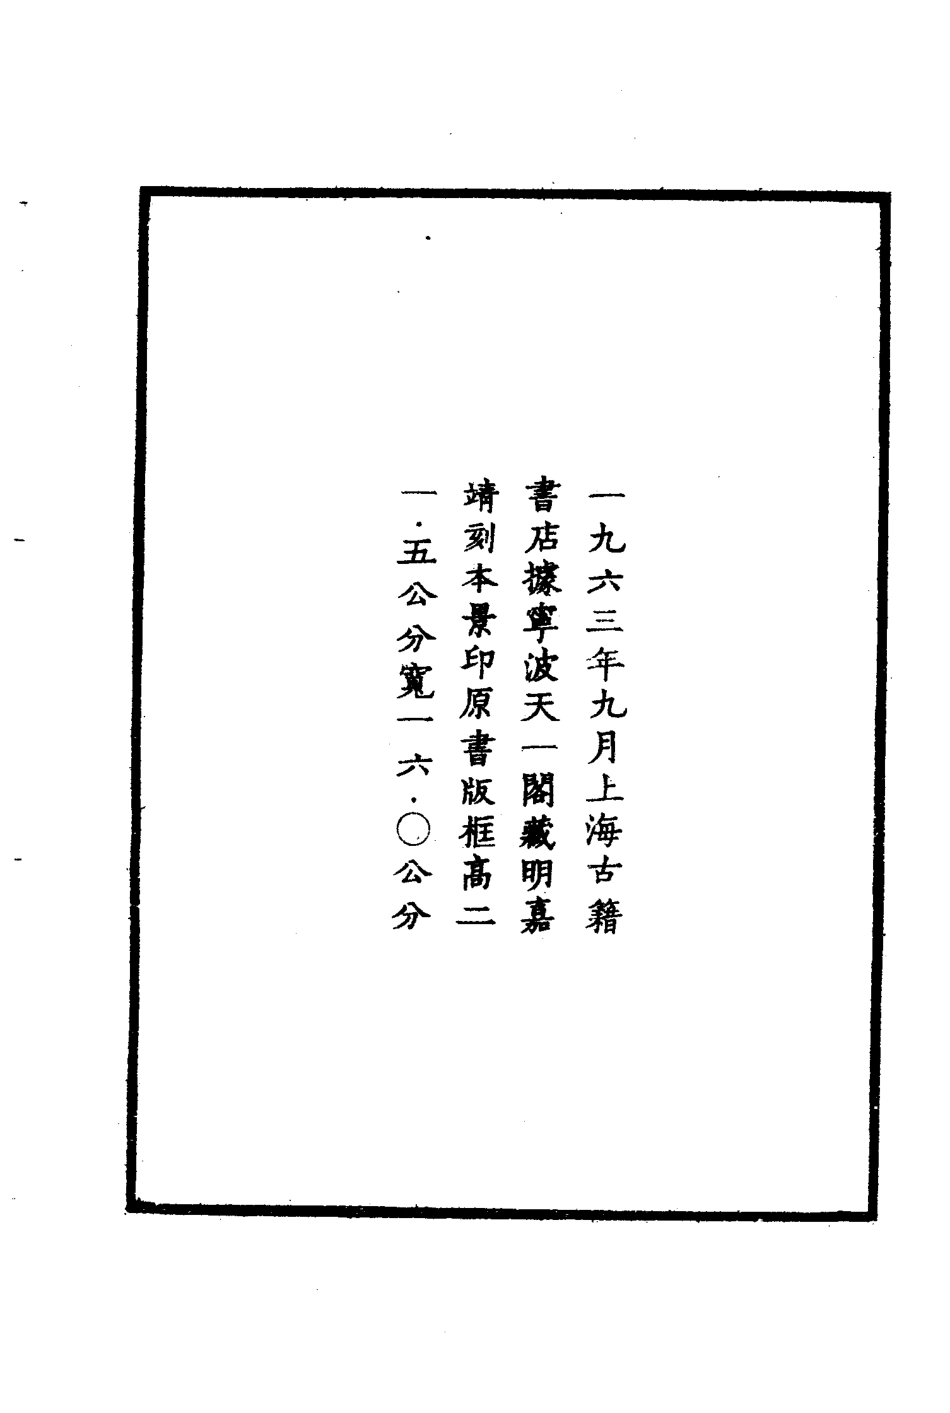 一九六三年九月上海古籍
書店據寧波天一閣藏明嘉
靖刻本景印原書版框高二
一·五公分寬一六·〇公分